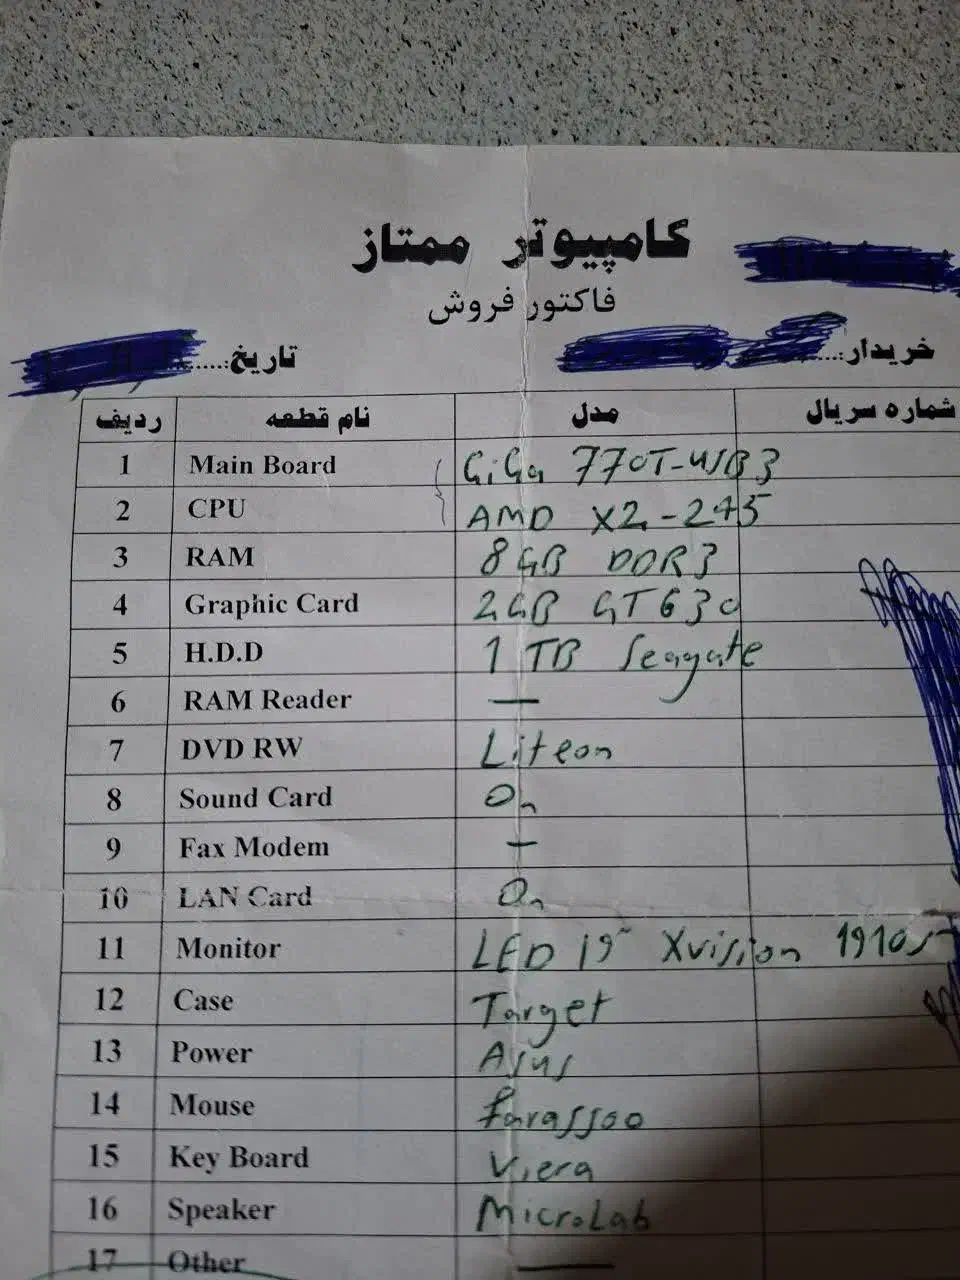 کامپیوتر ممتاز
فاکتور فروش
خریدار:...... تاریخ:......
ردیف نام قطعه مدل شماره سریال
1 Main Board GiGa 770T-USB3
2 CPU AMD X2-245
3 RAM 8GB DDR3
4 Graphic Card 2GB GT630
5 H.D.D 1 TB Seagate
6 RAM Reader —
7 DVD RW Liteon
8 Sound Card On
9 Fax Modem —
10 LAN Card On
11 Monitor LED 19" Xvision 1910S
12 Case Target
13 Power Asus
14 Mouse farassoo
15 Key Board Viera
16 Speaker MicroLab
17 Other —